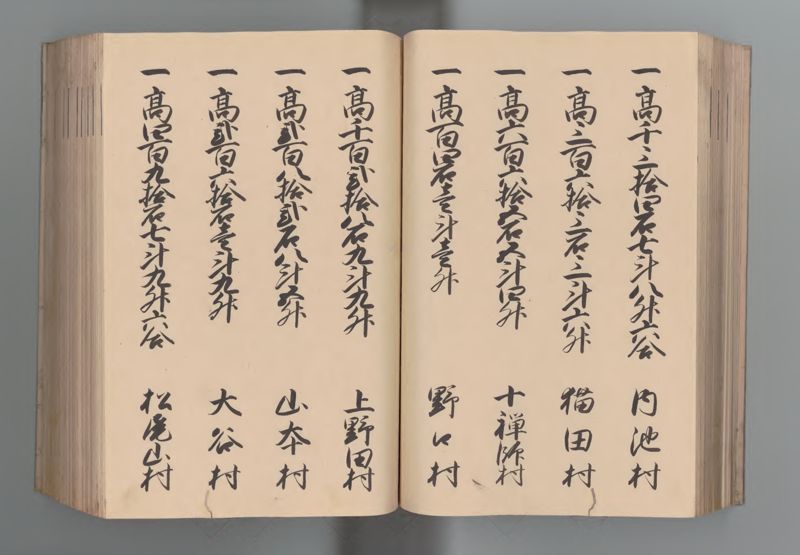 一髙千三拾四石七斗八升六合　内池村
一髙三百六拾三石三斗六升　猫田村
一髙六百六拾五石五斗四升　十禪師村
一髙百四石壱斗壱升　野口村
一髙千百弐拾八石九斗九升　上野田村
一髙弐百八拾弐石八斗五升　山本村
一髙弐百六拾石壱斗九升　大谷村
一髙四百九拾石七斗九升六合　松尾山村